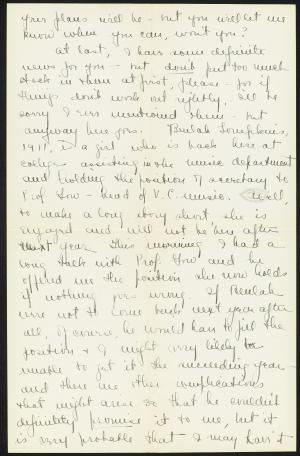 your plans will be - but you will let me
know when you can, won't you?
At last, I have some definite
news for you - but don't put too much
stock in them at first, please - for if
things don't work out rightly, I'll be
sorry I ever mentioned them - but
anyway here goes. Beulah Tompkins,
1911, is a girl who is back here at
college assisting in the music department
and holding the position of secretary to
Prof. Gow - head of V.C. music. Well,
to make a long story short, she is
engaged and will not be here after
next year. This morning I had a
long talk with Prof. Gow and he
offered me the position she now holds
if nothing goes wrong. If Beulah
were not to come back next year after
all, of course, he would have to fill the
position & I might very likely be
unable to get it the succeeding year -
and there are other complications
that might arise so that he couldn't
definitely promise it to me, but it
is very probable that I may have it